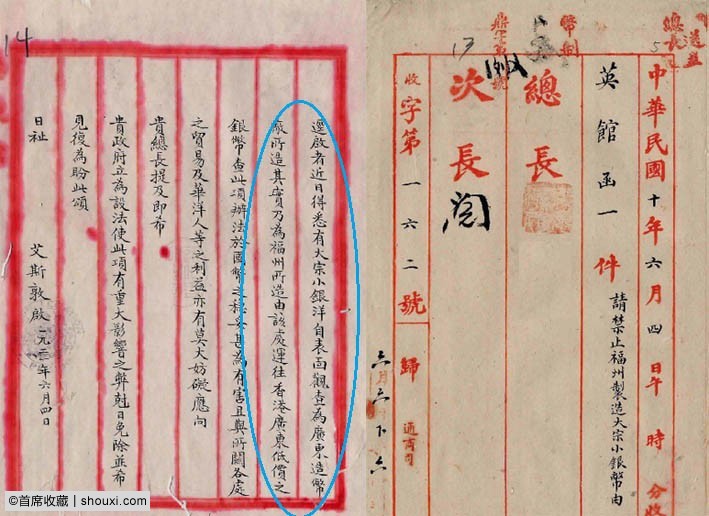 中華民國十年六月四日午 時 分收
英館函一件 請禁止福州製造大宗小銀幣由
總長
次長 閱
收字第一六二號 歸 通商司
17
5
14
逕啟者近日得悉有大宗小銀洋自表面觀查為廣東造幣
廠所造其實乃為福州所造由該處運往香港廣東低價之
銀幣查此項辦法於國幣之穩妥甚為有害且與所關各處
之貿易及華洋人等之利益亦有莫大妨礙應向
貴總長提及即希
貴政府立為設法使此項有重大影響之弊剋日免除並希
見復為盼此頌
日祉 艾斯敦啟一九二一年六月四日
©首席收藏 | shouxi.com